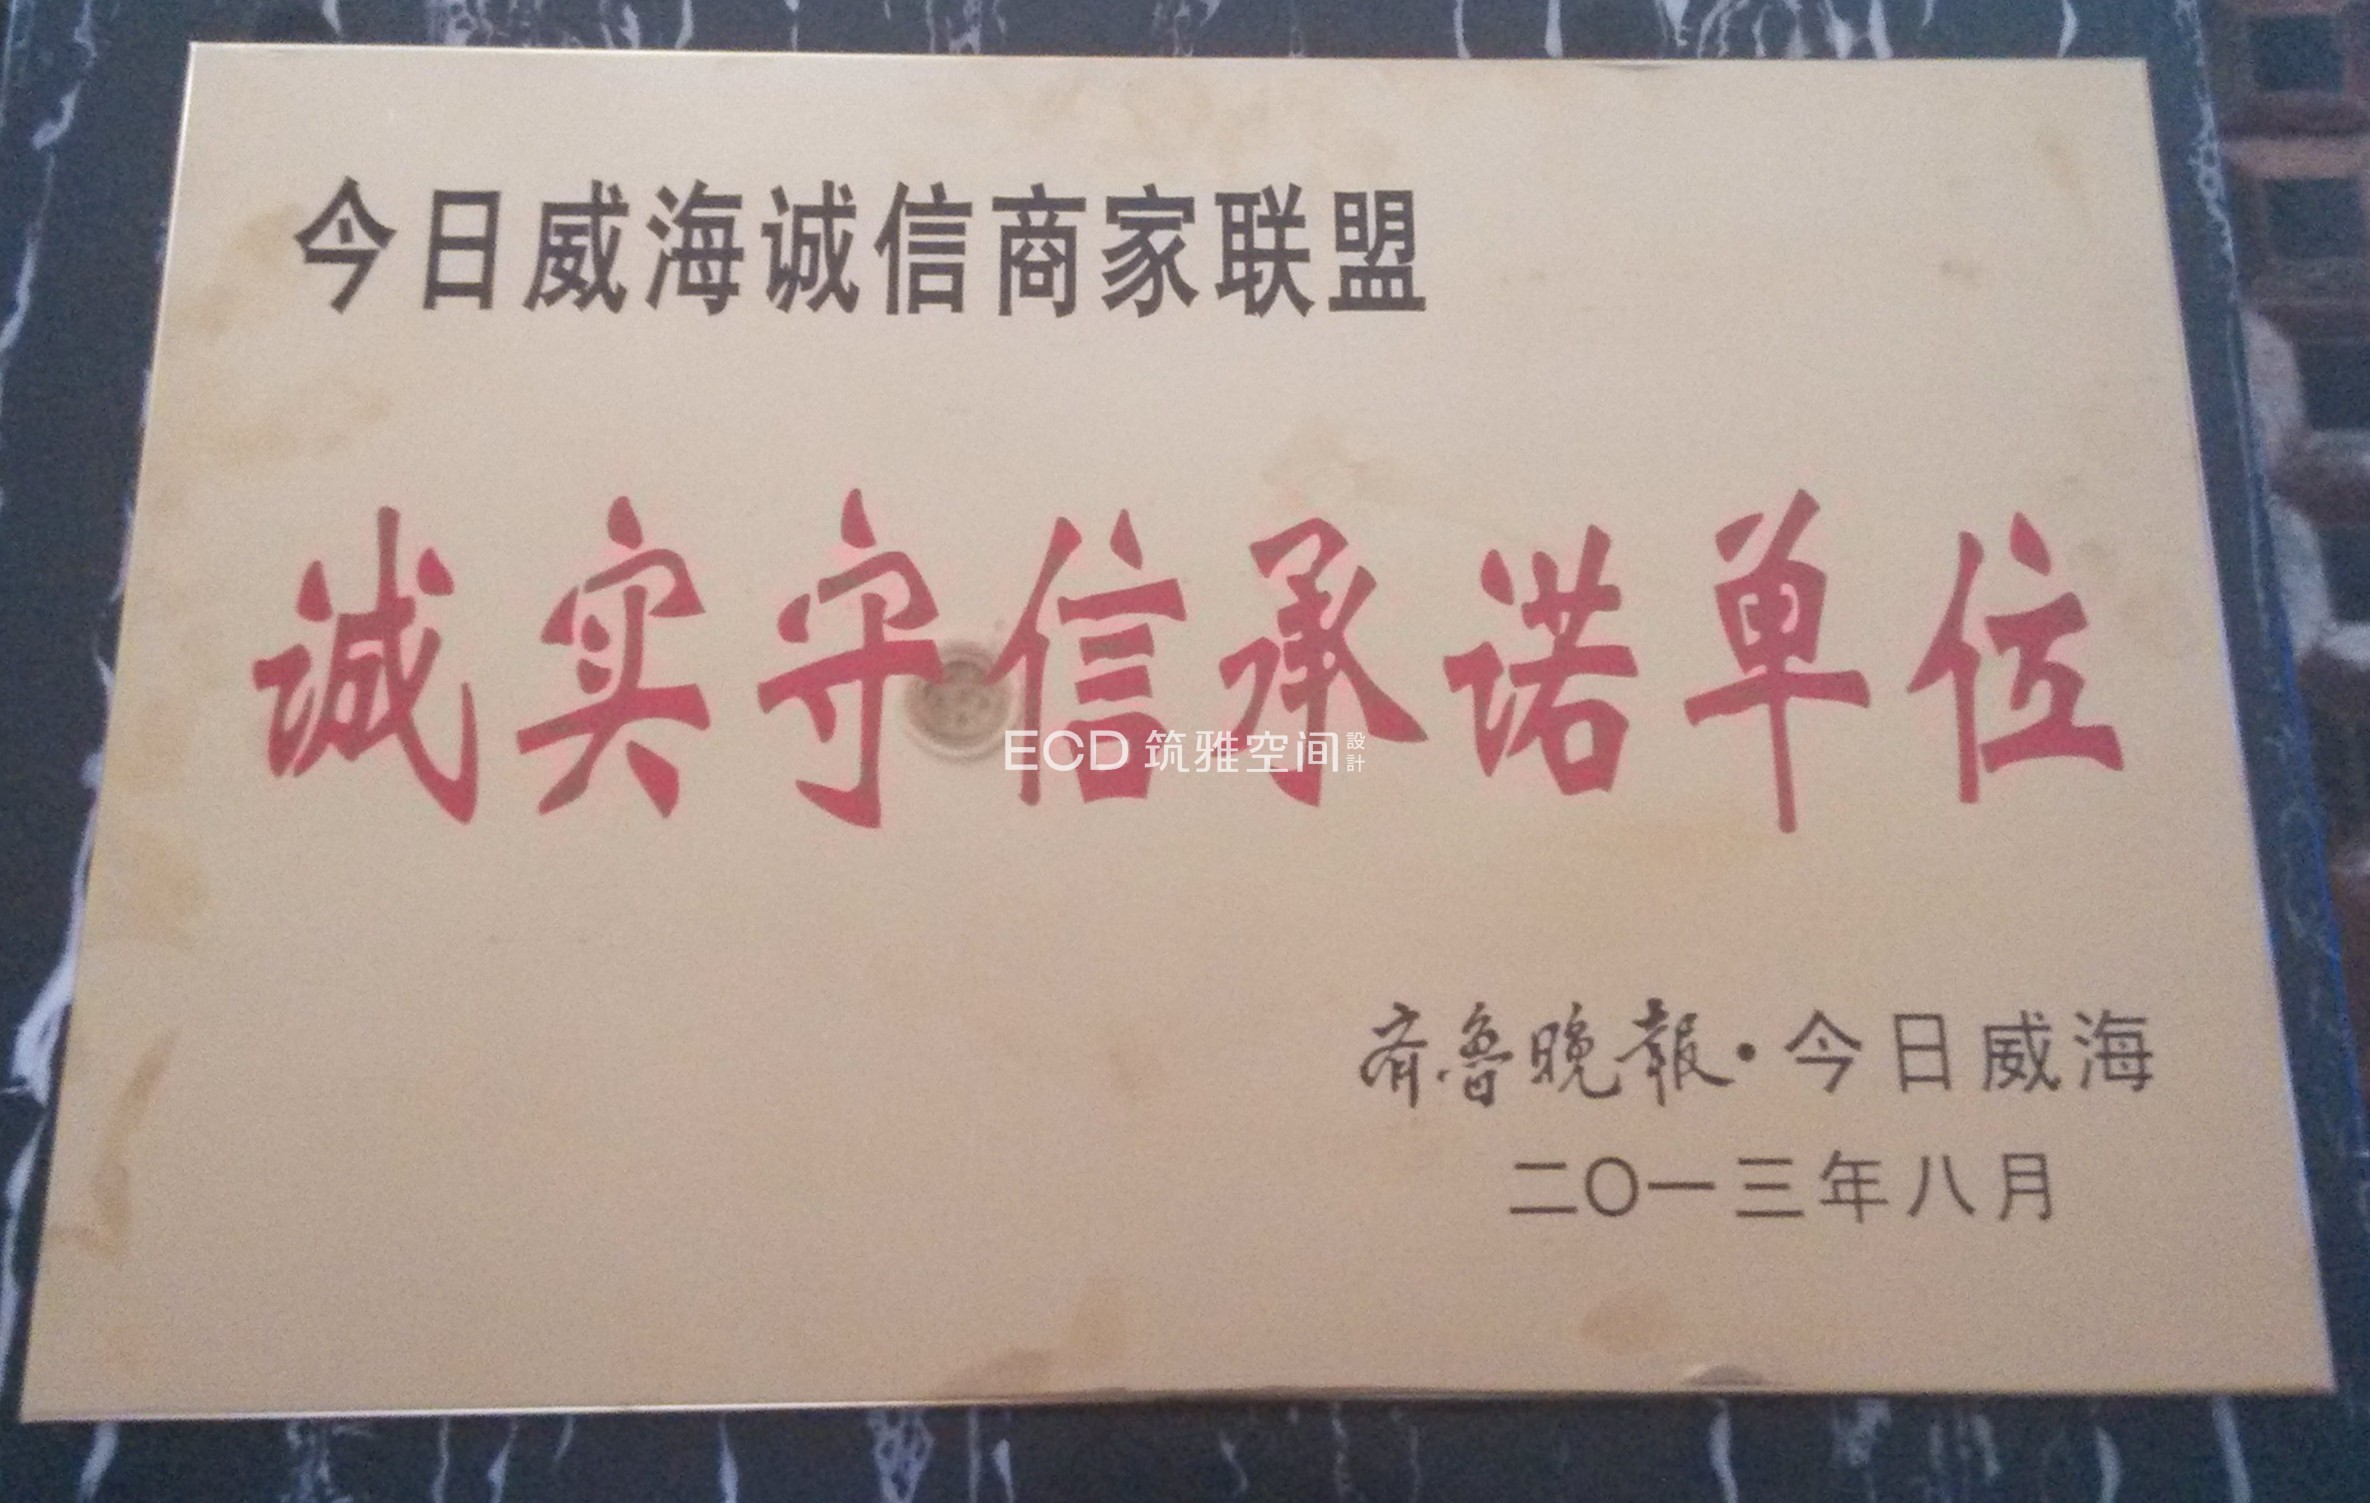 今日威海诚信商家联盟
诚实守信承诺单位
ECD 筑雅空间 設計
齐鲁晚報·今日威海
二〇一三年八月